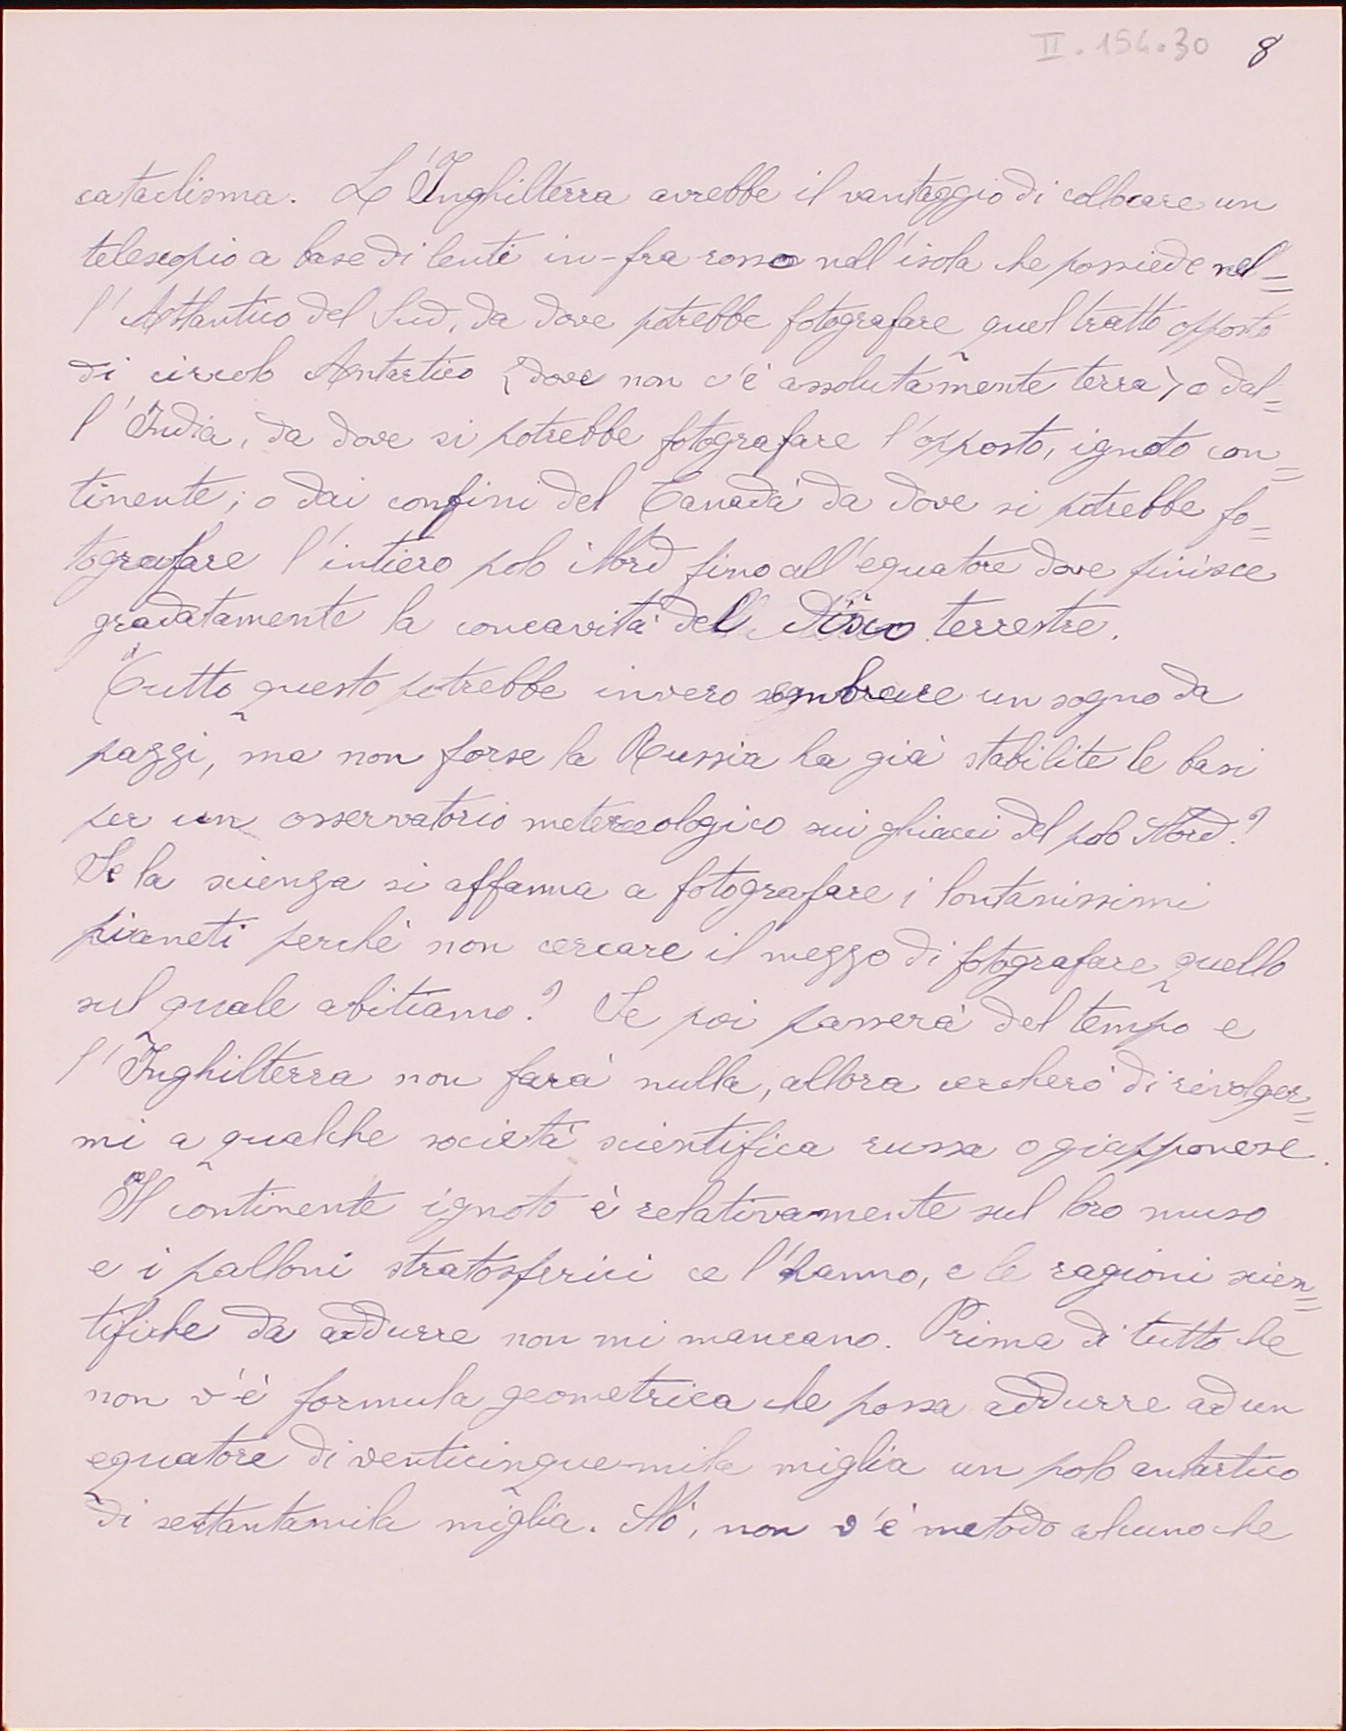 II.154.30 8
cataclisma. L'Inghilterra avrebbe il vantaggio di collocare un
telescopio a base di lenti in-fra rosso nell'isola che possiede nel=
l'Atlantico del Sud, da dove potrebbe fotografare quel tratto opposto
di circolo Antartico (dove non c'è assolutamente terra) o dal=
l'India, da dove si potrebbe fotografare l'opposto, ignoto con=
tinente; o dai confini del Canadà da dove si potrebbe fo=
tografare l'intiero polo Nord fino all'equatore dove finisce
gradatamente la concavità del disco terrestre.
Tutto questo potrebbe invero sembrare un sogno da
pazzi, ma non forse la Russia ha già stabilite le basi
per un osservatorio metereologico sui ghiacci del polo Nord?
Se la scienza si affanna a fotografare i lontanissimi
pianeti perchè non cercare il mezzo di fotografare quello
sul quale abitiamo? Se poi passerà del tempo e
l'Inghilterra non farà nulla, allora cercherò di rivolger=
mi a qualche società scientifica russa o giapponese.
Il continente ignoto è relativamente sul loro muso
e i palloni stratosferici ce l'hanno, e le ragioni scien=
tifiche da addurre non mi mancano. Prima di tutto che
non v'è formula geometrica che possa addurre ad un
equatore di venticinque-mila miglia un polo antartico
di settantamila miglia. Nò, non v'è metodo alcuno che